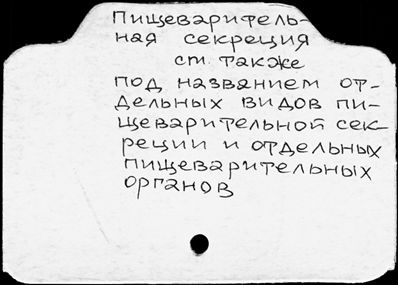 Пищеваритель-
ная секреция
см также
под названием от-
дельных видов пи-
щеварительной сек-
реции и отдельных
пищеварительных
органов